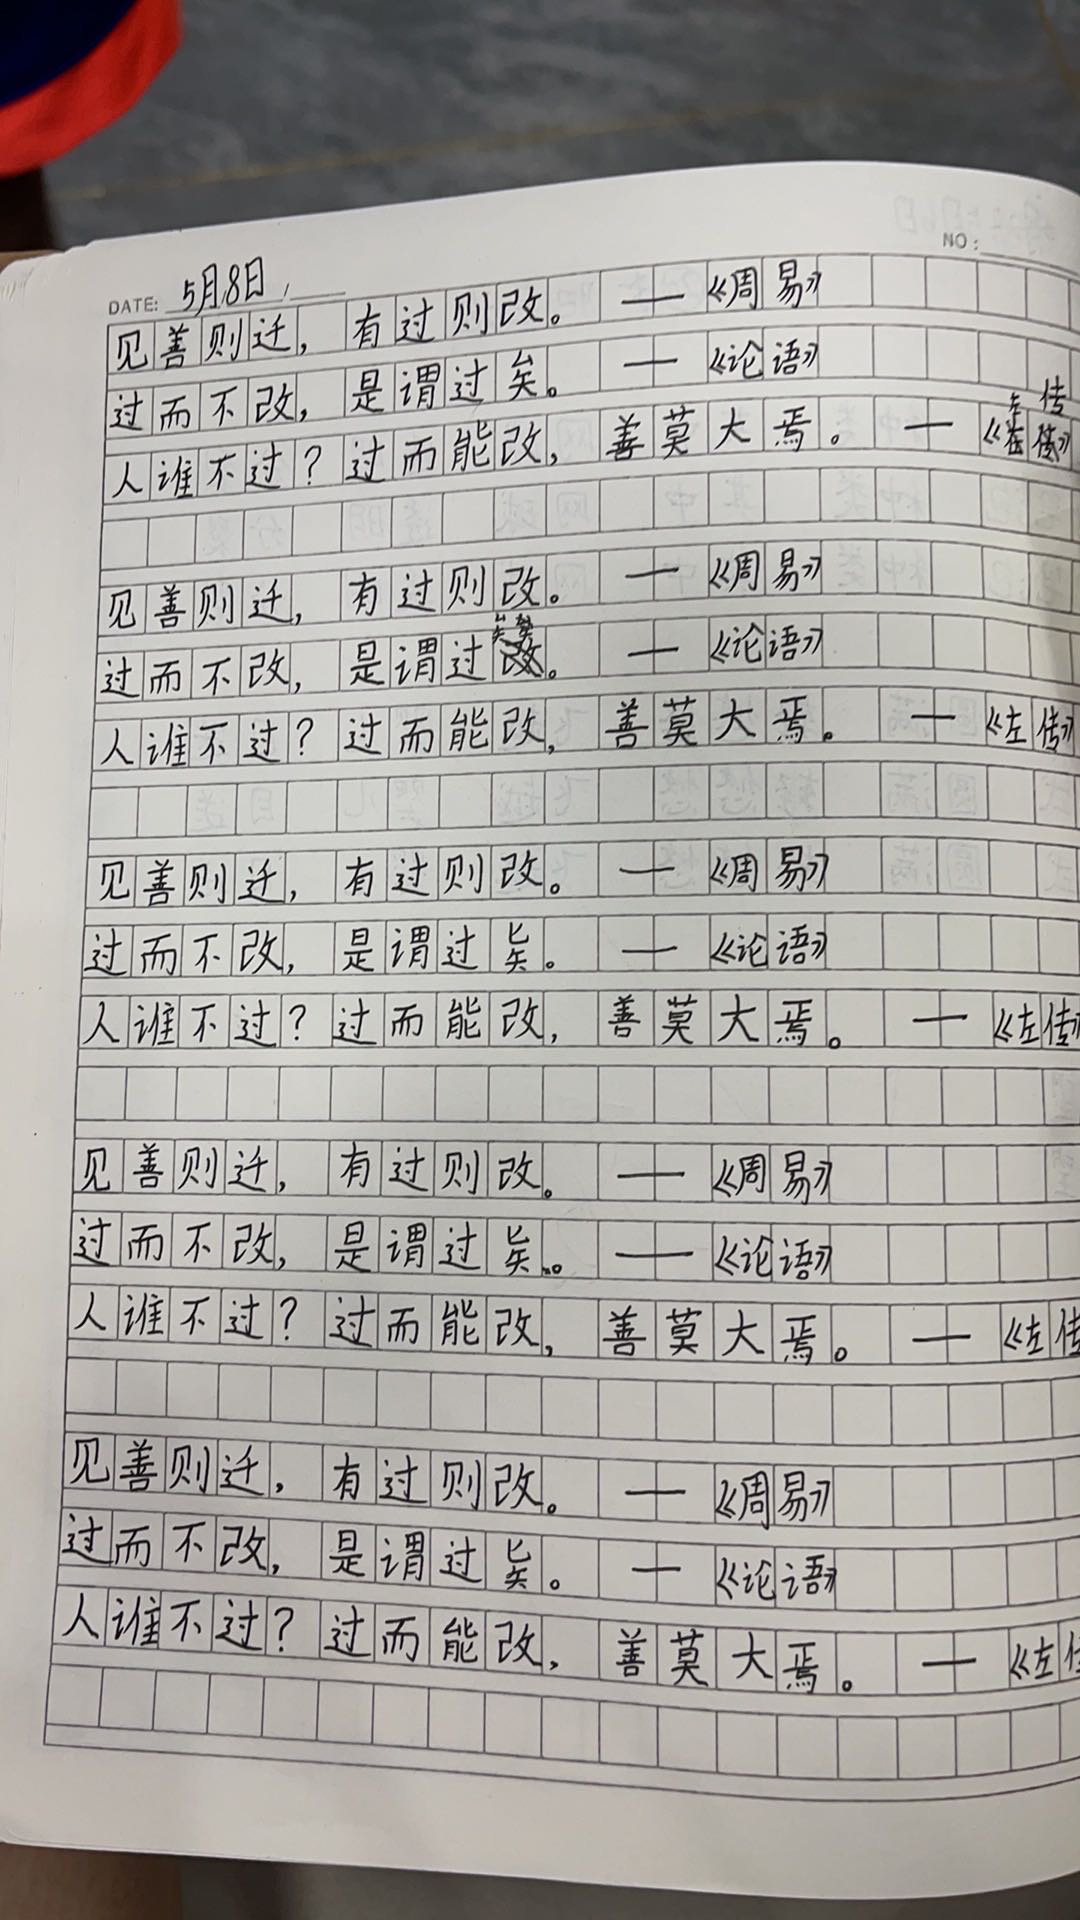 NO:
DATE: 5月8日
见善则迁，有过则改。——《周易》
过而不改，是谓过矣。——《论语》
左 传
人谁不过？过而能改，善莫大焉。——《传》
见善则迁，有过则改。——《周易》
矣
过而不改，是谓过。——《论语》
人谁不过？过而能改，善莫大焉。——《左传》
见善则迁，有过则改。——《周易》
过而不改，是谓过矣。——《论语》
人谁不过？过而能改，善莫大焉。——《左传》
见善则迁，有过则改。——《周易》
过而不改，是谓过矣。——《论语》
人谁不过？过而能改，善莫大焉。——《左传
见善则迁，有过则改。——《周易》
过而不改，是谓过矣。——《论语》
人谁不过？过而能改，善莫大焉。——《左传